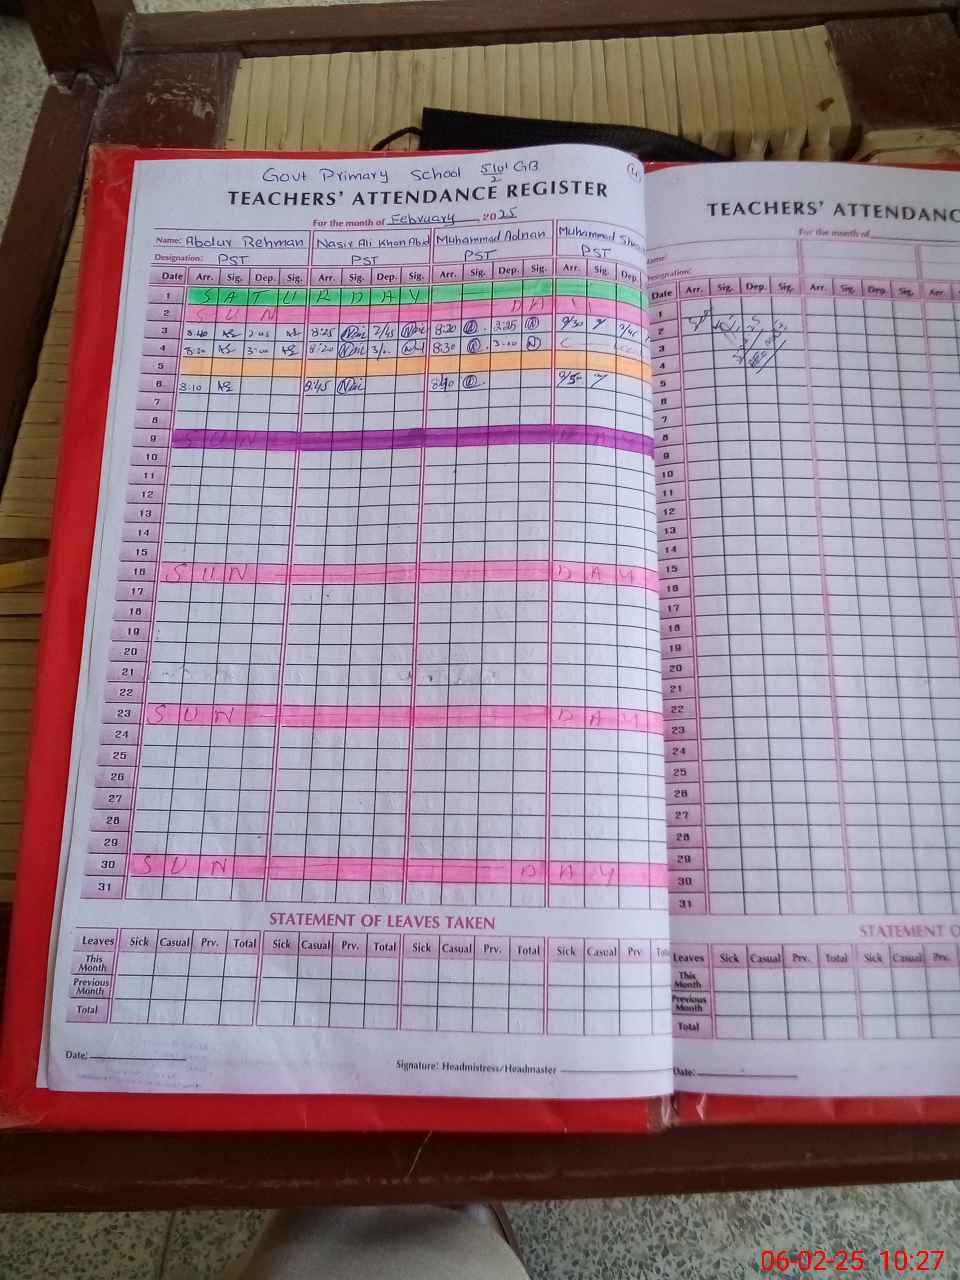 Govt Primary School 510/2 GB
TEACHERS' ATTENDANCE REGISTER
For the month of February 2025
Name: Abdur Rehman Nasir Ali Khan Abid Muhammad Adnan Muhammad
Designation: PST PST PST PST
Date Arr. Sig. Dep. Sig. Arr. Sig. Dep. Sig. Arr. Sig. Dep. Sig. Arr. Sig. Dep.
1 SATURDAY
2 SUN DA
3 8:40 2:45 8:25 2/45 8:20 2:25 9/30 2/45
4 8:20 3:00 8:20 3/.. 8:30 3:00 C
5
6 8:10 8:45
7
8
9 SUN DAY
10
11
12
13
14
15
16 SUN DAY
17
18
19
20
21
22
23 SUN DAY
24
25
26
27
28
29
30 SUN DAY
31
STATEMENT OF LEAVES TAKEN
Leaves Sick Casual Prv. Total Sick Casual Prv. Total Sick Casual Prv. Total Sick Casual Prv
This Month
Previous Month
Total
Date:
Signature: Headmistress/Headmaster
TEACHERS' ATTENDANC
For the month of
Name:
Designation:
Date Arr. Sig. Dep. Sig. Arr. Sig. Dep. Sig. Arr.
1
2
3
4
5
6
7
8
9
10
11
12
13
14
15
16
17
18
19
20
21
22
23
24
25
26
27
28
29
30
31
STATEMENT O
Leaves Sick Casual Prv. Total Sick Casual Prv.
This Month
Previous Month
Total
Date:
06-02-25 10:27